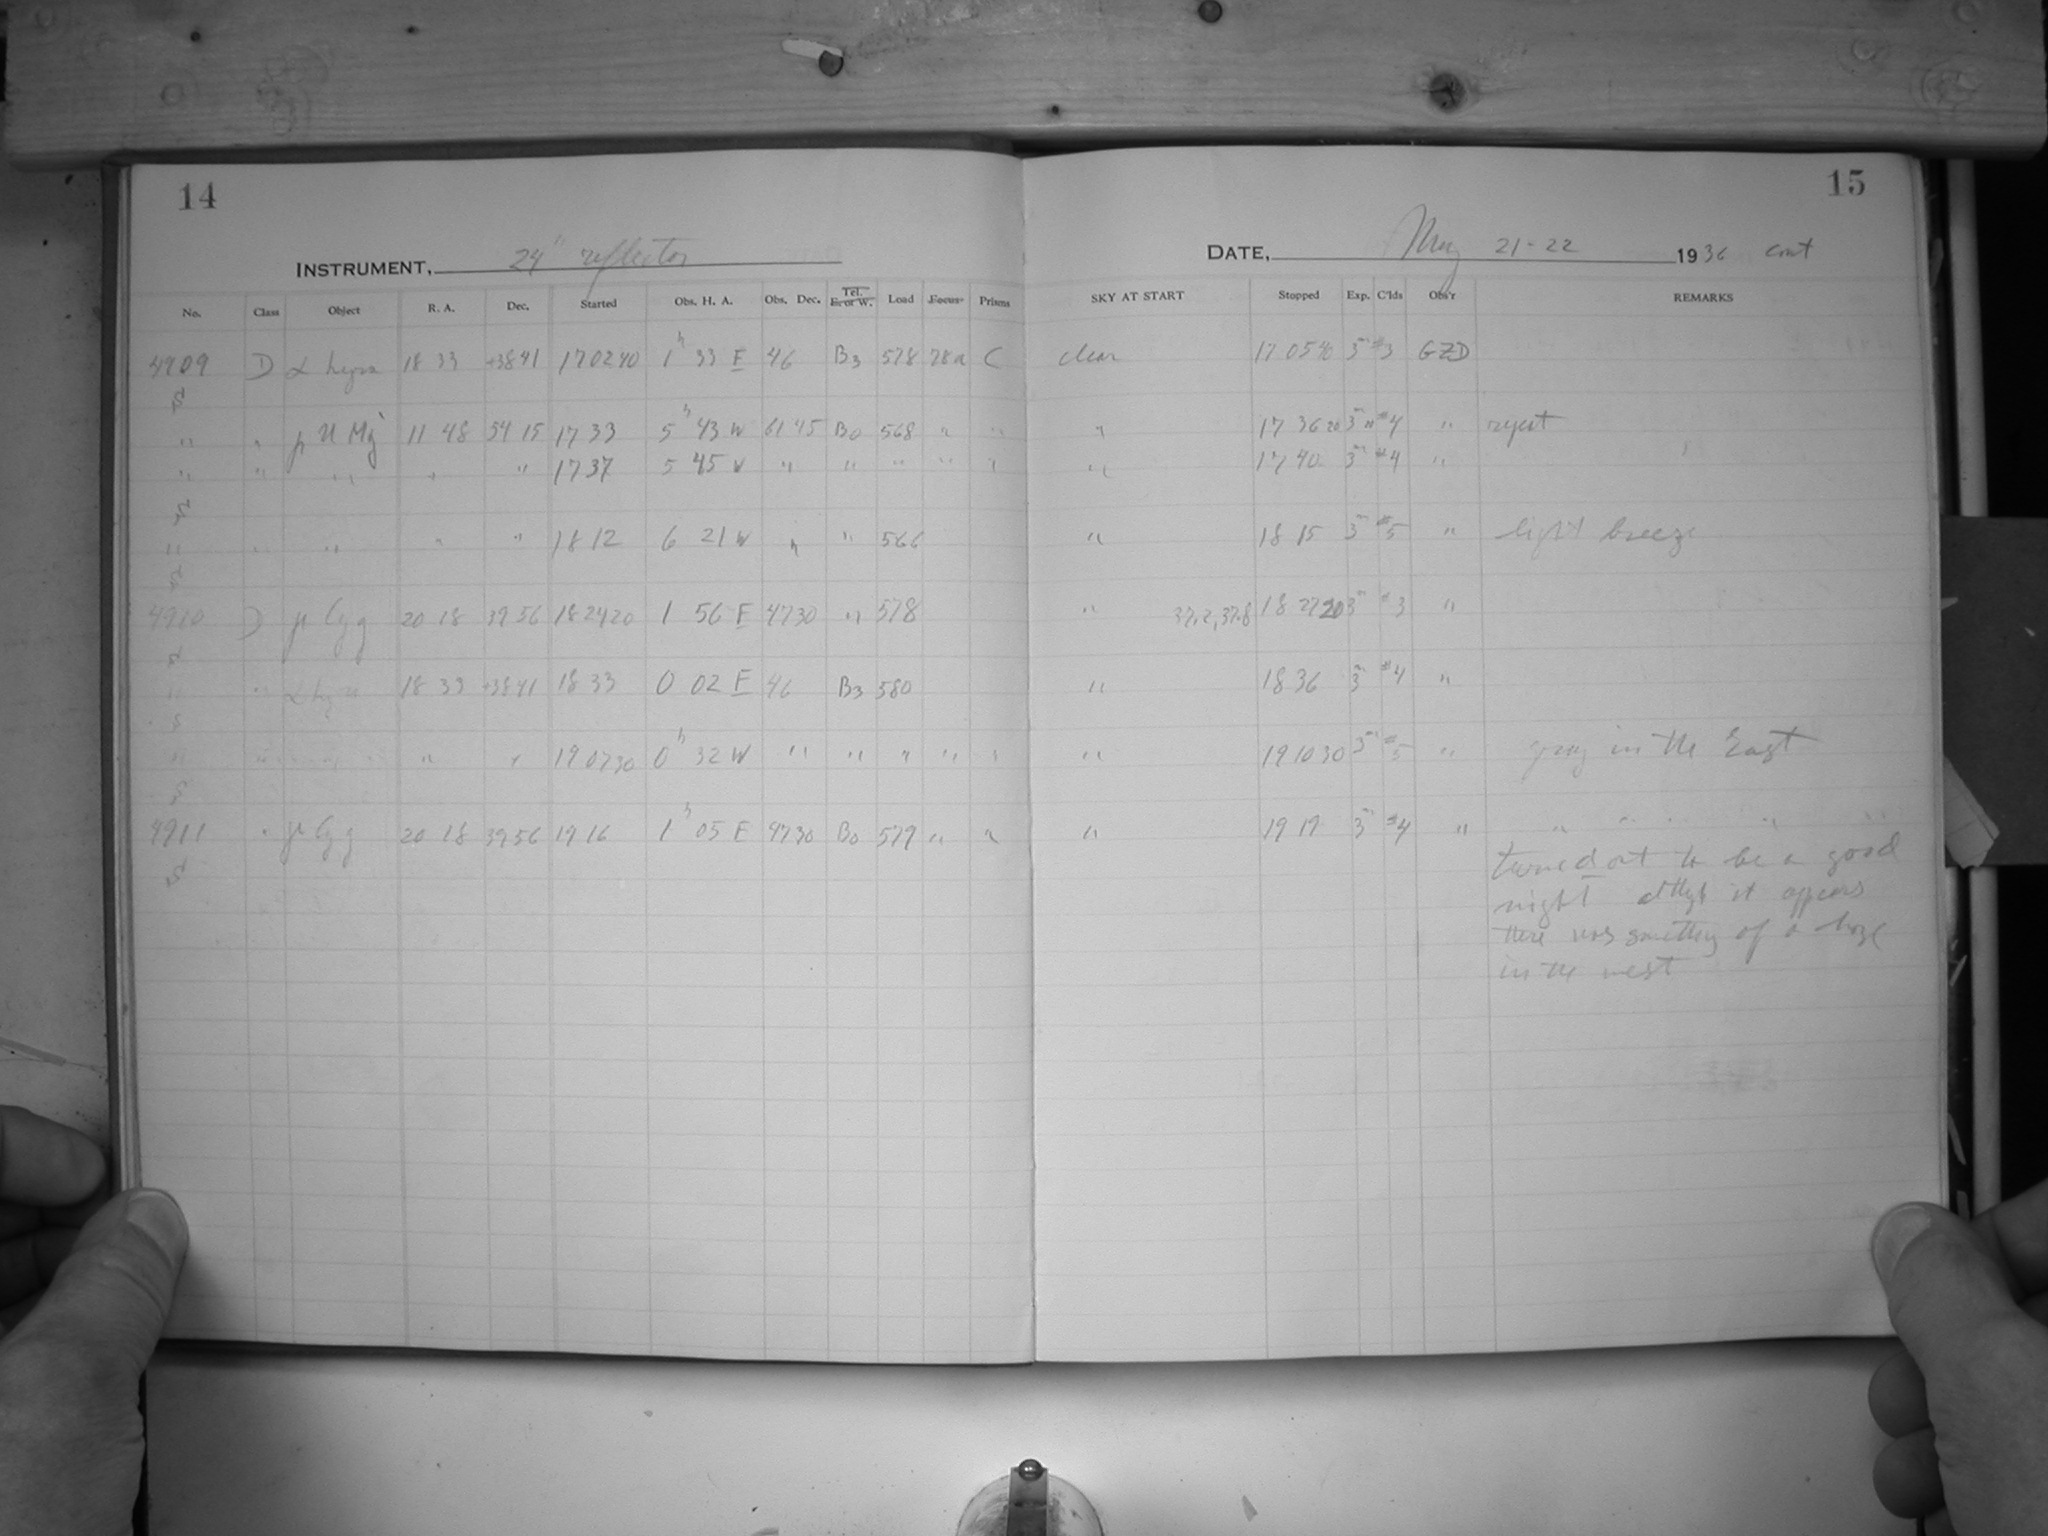 14
15
INSTRUMENT, 24" reflector
DATE, May 21-22 1936 cont
No. Class Object R. A. Dec. Started Obs. H. A. Obs. Dec. Tel. E. or W. Load Focus Prisms SKY AT START Stopped Exp. C'lds Obs'r REMARKS
4909 D α Lyra 18 33 +38 41 17 02 40 1h 33 E 46 B3 578 28a C clear 17 05 40 3m #3 GZD
" " 11 48 54 15 17 33 5h 43 W 61 45 B0 568 " " " 17 36 20 3m #4 "
" " " " " 17 37 5 45 W " " " " " " 17 40 3m #4 "
" " " " " 18 12 6 21 W " " 566 " 18 15 3m #5 " light breeze
4910 D γ Cyg 20 18 39 56 18 24 20 1 56 E 47 30 " 578 " 37.2, 37.8 18 27 20 3m #3 "
" " α Lyra 18 33 +38 41 18 33 0 02 E 46 B3 580 " 18 36 3m #4 "
" " " " " 19 07 30 0h 32 W " " " " " " 19 10 30 3m #5 " gray in the East
4911 " γ Cyg 20 18 39 56 19 16 1h 05 E 47 30 B0 579 " " " 19 19 3m #4 " " " " " "
turned out to be a good
night altho it appears
there was something of a haze
in the west